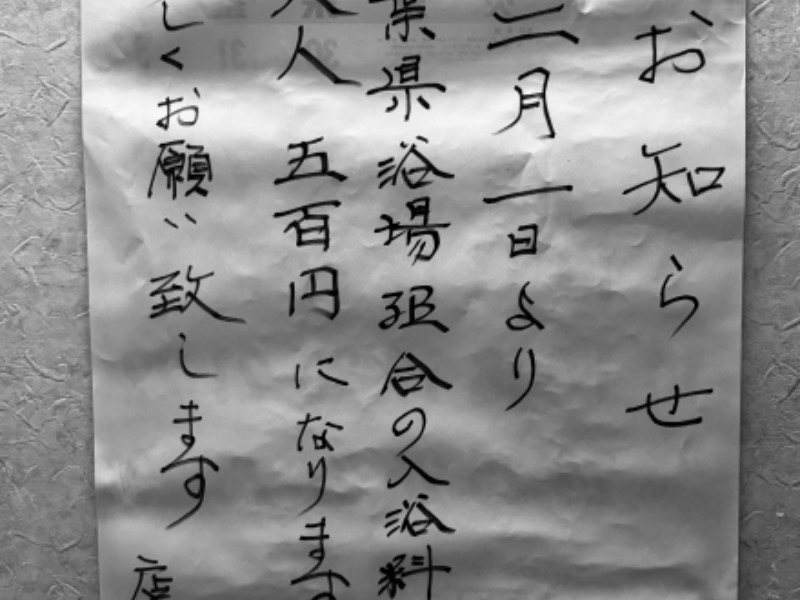 お知らせ
二月一日より
葉県浴場組合の入浴料
大人 五百円になります
しくお願い致します 店